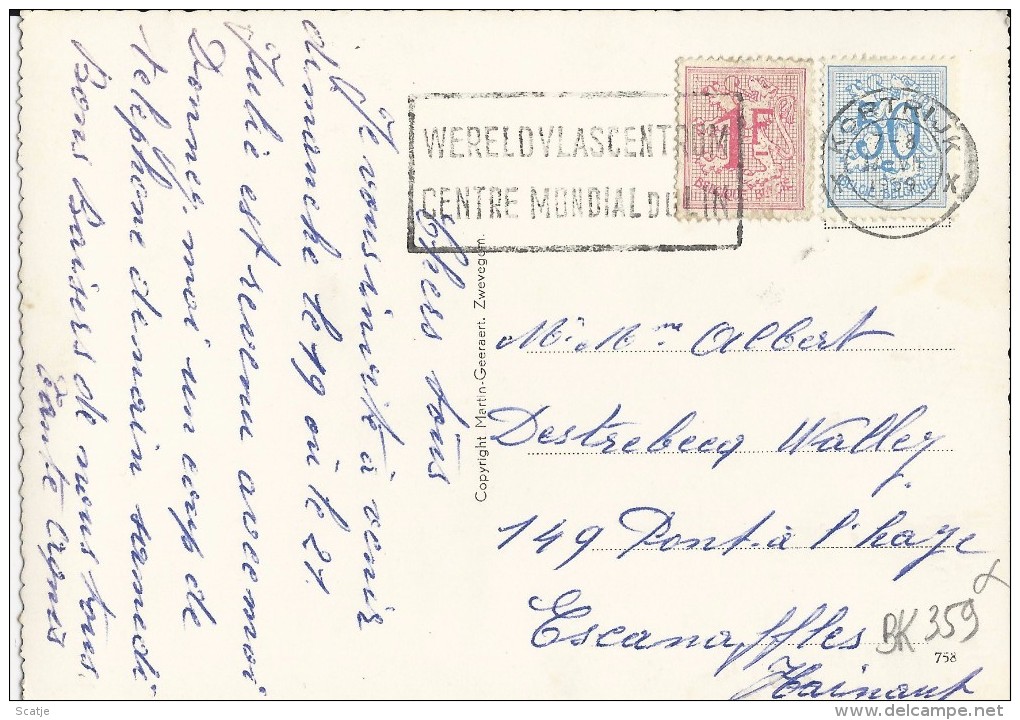 WERELDVLASCENTRUM
CENTRE MONDIAL DU LIN
1F
50
KORTRIJK
X X
Chers tous
Je vous invite à venir
dimanche le 19 où le 21
Julie est revenu avec moi
Donnez, moi un coup de
téléphone demain samedi
Bons Baisers de nous tous.
Tante
Copyright Martin-Geeraert. Zwevegem.
Mr Mme Albert
Destrebecq Walley
149 Pont à l'haye
Escanaffles
Hainaut
BK 359
758
Scatje
delcampe.net